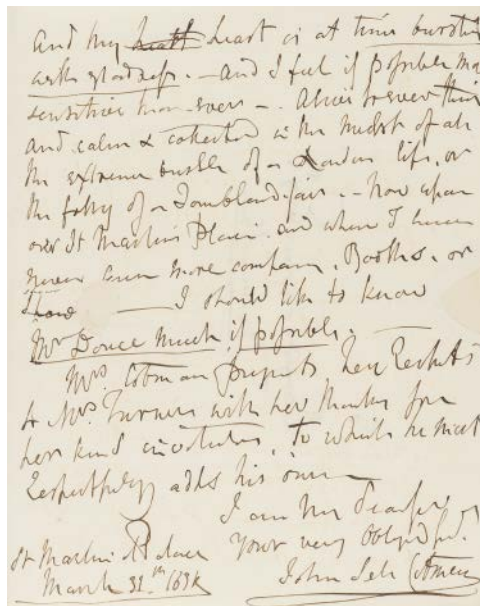 And my heart heart is at times bursting
with gladness. — And I feel if possible mo
sensitive than ever —. Alive to every thing
and calm & collected in the midst of all
the extreme bustle of a London life, or
the folly of a Tombland fair. — Now upon
over St Martins Plain. and when I
never even more company, Books, or
— I should like to know
Mr Douce much if possible. —
Mrs. Cotman presents her respects
to Mrs. Turner with her thanks for
her kind invitation, to which he most
Respectfully adds his own —
I am My Dear Sir
Your very Obliged
St Martins at Palace
March 31th
John Sell Cotman